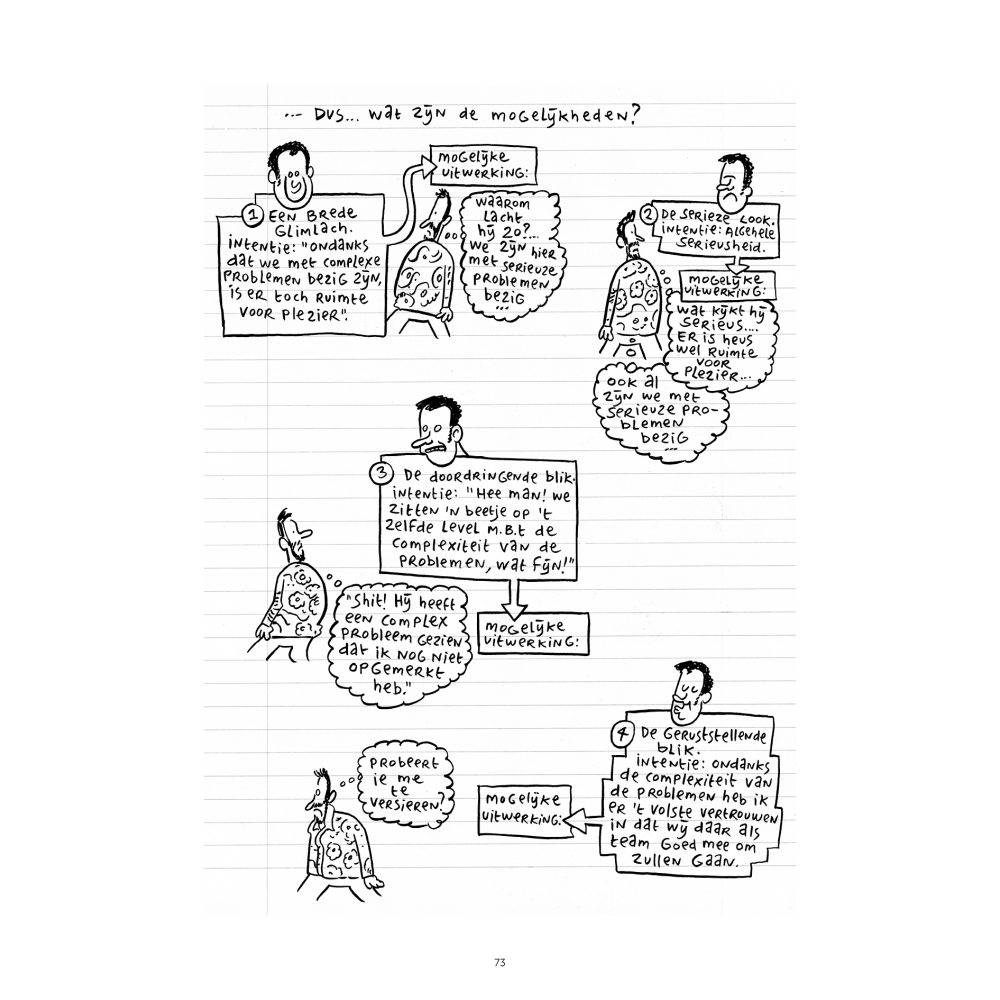 ... Dus... wat zijn de mogelijkheden?
mogelijke
uitwerking:
1 Een brede
glimlach.
intentie: "ondanks
dat we met complexe
problemen bezig zijn,
is er toch ruimte
voor plezier".
waarom
lacht
hij zo?...
we zijn hier
met serieuze
problemen
bezig
...
2 De serieze look.
intentie: algehele
serieusheid.
mogelijke
uitwerking:
wat kijkt hij
serieus....
er is heus
wel ruimte
voor
plezier...
ook al
zijn we met
serieuze pro-
blemen
bezig
...
3 De doordringende blik.
intentie: "Hee man! we
zitten 'n beetje op 't
zelfde level m.b.t de
complexiteit van de
problemen, wat fijn!"
mogelijke
uitwerking:
"Shit! Hij heeft
een complex
probleem gezien
dat ik nog niet
opgemerkt
heb."
4 De geruststellende
blik.
intentie: ondanks
de complexiteit van
de problemen heb ik
er 't volste vertrouwen
in dat wij daar als
team goed mee om
zullen gaan.
mogelijke
uitwerking:
probeert
ie me
te
versieren?
73